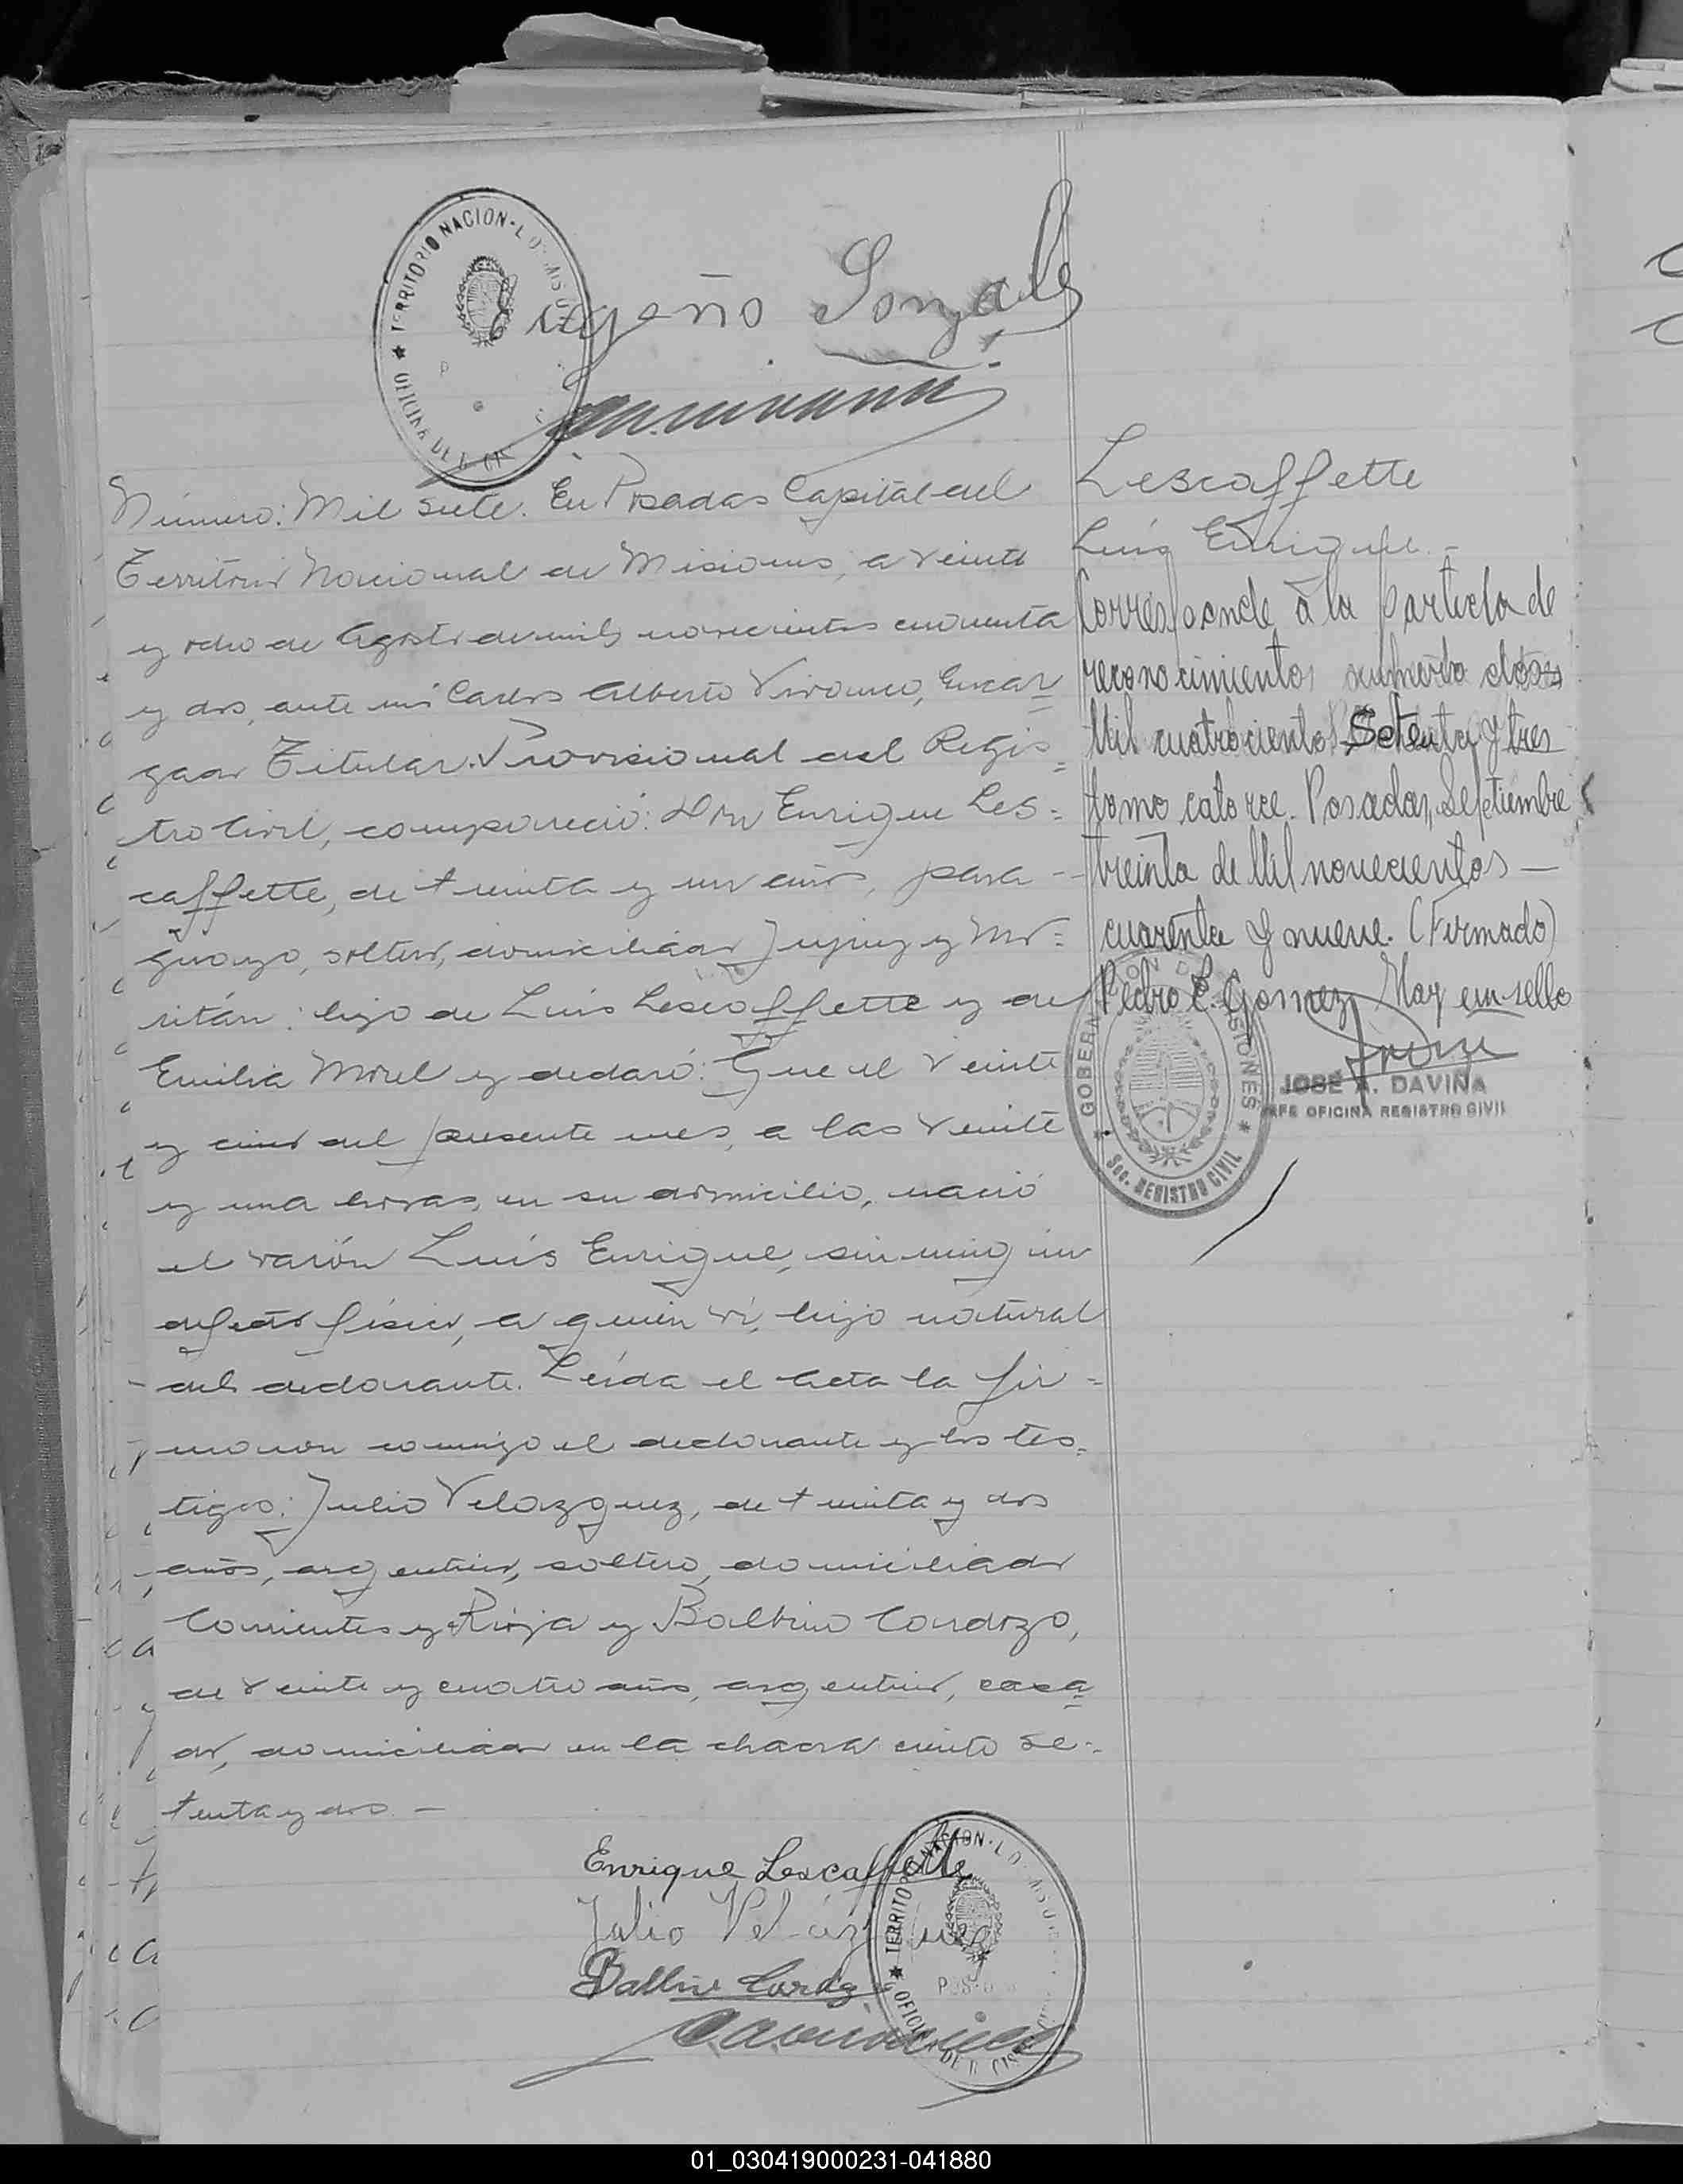 TERRITORIO NACIONAL D MISIONES
OFICINA DE R. CIVIL
Eugenio Gonzalez
Número: Mil siete. En Posadas Capital del
Territorio Nacional de Misiones, a veinte
y ocho de Agosto de mil novecientos cuarenta
y dos, ante mi Carlos Alberto Vivanco, Encar=
gado Titular Provisional del Regis=
tro Civil, compareció: Don Enrique Les=
caffette, de treinta y un años, para-
guayo, soltero, domiciliado Jujuy y Mo=
ritán: hijo de Luis Lescaffette y de
Emilia Morel y declaró: Que el veinte
y cinco del presente mes, a las veinte
y una horas, en su domicilio, nació
el varón Luis Enrique, sin ningún
defecto físico, a quien ví, hijo natural
del declarante. Leída el Acta la fir=
maron conmigo el declarante y los tes=
tigos: Julio Velazquez, de treinta y dos
años, argentino, soltero, domiciliado
Corrientes y Rioja y Balbino Cardozo,
de veinte y cuatro años, argentino, casa=
do, domiciliado en la chacra ciento se=
tenta y dos.—
Enrique Lescaffette
Julio Velázquez
Balbino Cardozo
TERRITORIO NACION-L D MISIONES
OFICINA DE R. CIVIL
POSADAS
Lescaffette
Luis Enrique.-
Corresponde a la partida de
reconocimiento número dos
Mil cuatrocientos Setenta y tres
tomo catorce. Posadas, Septiembre
treinta de Mil novecientos —
cuarenta y nueve. (Firmado)
Pedro E. Gomez Hay un sello
JOSÉ A. DAVIÑA
JEFE OFICINA REGISTRO CIVIL
GOBERNACION DE MISIONES
Sec. REGISTRO CIVIL
01_030419000231-041880